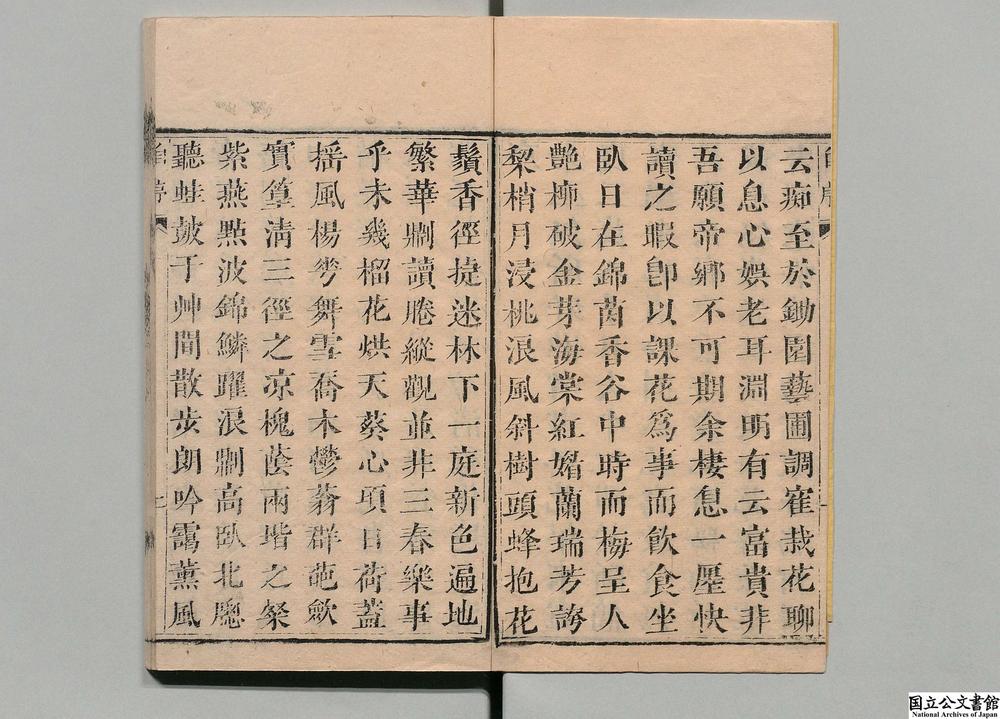 云痴至於鋤園藝圃調寉栽花聊
以息心娛老耳淵明有云富貴非
吾願帝鄉不可期余棲息一廛快
讀之暇卽以課花爲事而飲食坐
臥日在錦茵香谷中時而梅呈人
艶柳破金芽海棠紅媚蘭瑞芳誇
棃梢月浸桃浪風斜樹頭蜂抱花
鬚香徑捷迷林下一庭新色遍地
繁華劘讀睠縱觀並非三春樂事
乎未幾榴花烘天葵心頃日荷蓋
搖風楊芳舞雪喬木鬱蓊群葩斂
實篁清三徑之凉槐蔭兩堦之粲
紫燕點波錦鱗躍浪劘高臥北牕
聽蛙鼓于艸間散步朗吟霭薰風
国立公文書館
National Archives of Japan